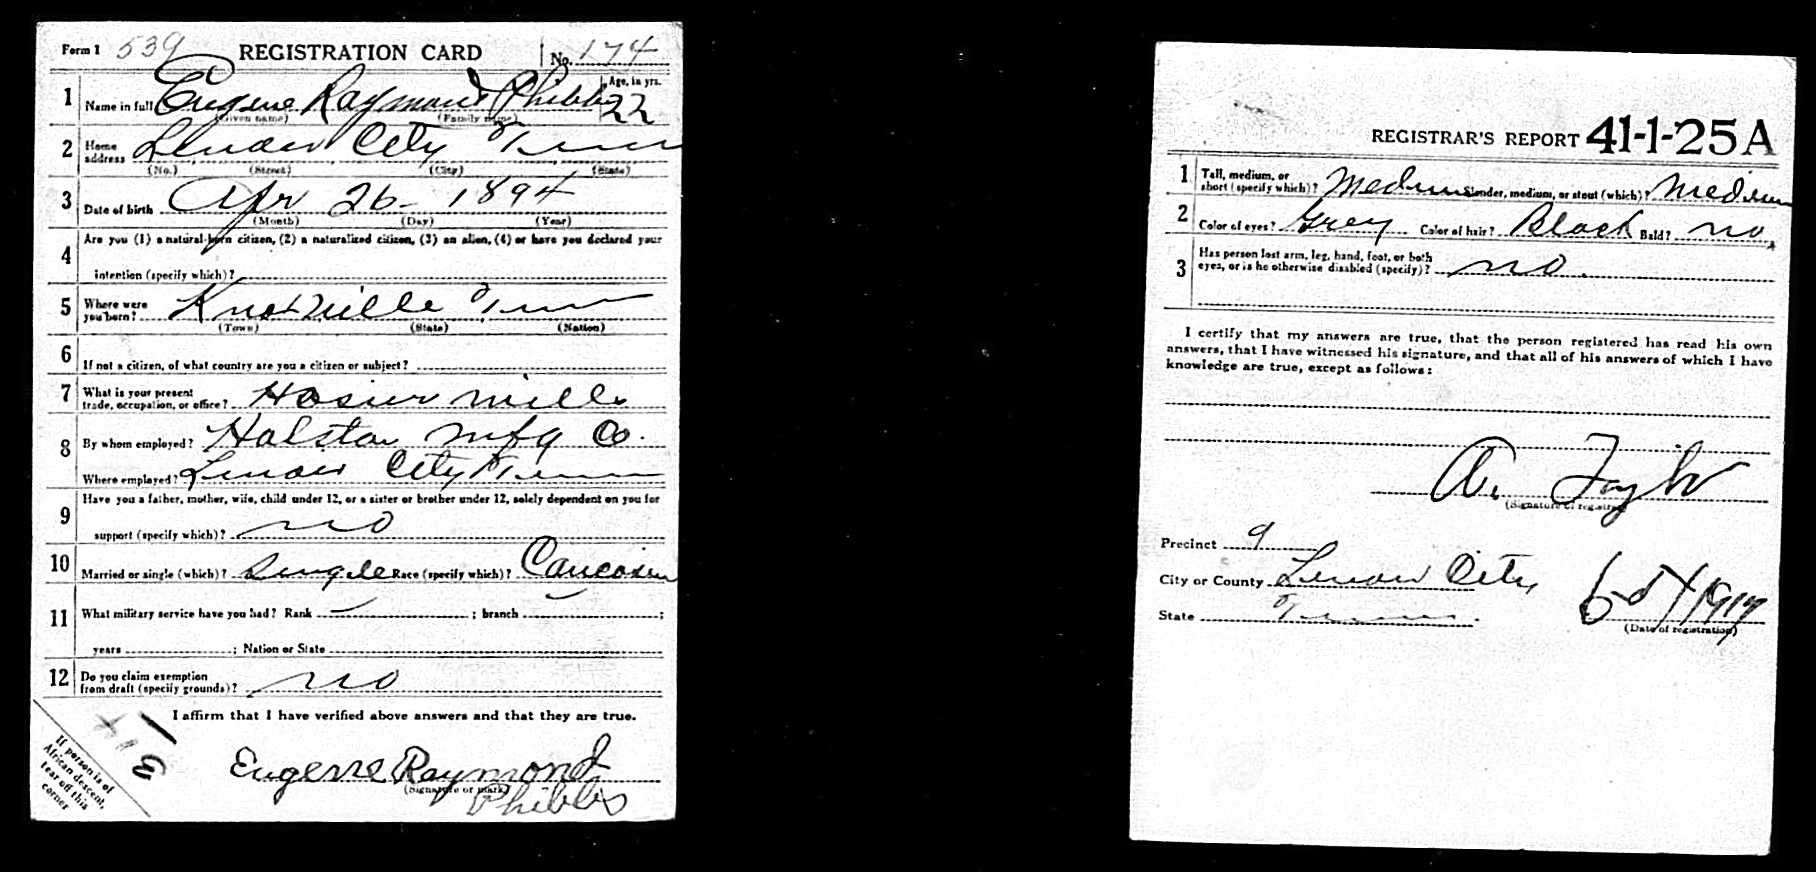 Form 1 539 REGISTRATION CARD No. 174
1 Name in full Eugene Raymond Phibbs Age, in yrs. 22
(Given name) (Family name)
2 Home address Lenoir City Tenn
(No.) (Street) (City) (State)
3 Date of birth Apr 26 - 1894
(Month) (Day) (Year)
4 Are you (1) a natural-born citizen, (2) a naturalized citizen, (3) an alien, (4) or have you declared your
intention (specify which)?
5 Where were you born? Knoxville Tenn
(Town) (State) (Nation)
6 If not a citizen, of what country are you a citizen or subject?
7 What is your present trade, occupation, or office? Hosier mills
8 By whom employed? Holston Mfg Co.
Where employed? Lenoir City Tenn
9 Have you a father, mother, wife, child under 12, or a sister or brother under 12, solely dependent on you for
support (specify which)? no
10 Married or single (which)? Single Race (specify which)? Caucasian
11 What military service have you had? Rank ; branch ;
years ; Nation or State
12 Do you claim exemption from draft (specify grounds)? no
I affirm that I have verified above answers and that they are true.
Eugene Raymond
(Signature or mark)
Phibbs
If person is of
African descent,
tear off this
corner
REGISTRAR'S REPORT 41-1-25 A
1 Tall, medium, or short (specify which)? Medium Slender, medium, or stout (which)? Medium
2 Color of eyes? Grey Color of hair? Black Bald? no
3 Has person lost arm, leg, hand, foot, or both
eyes, or is he otherwise disabled (specify)? no.
I certify that my answers are true, that the person registered has read his own
answers, that I have witnessed his signature, and that all of his answers of which I have
knowledge are true, except as follows:
Taylor
(Signature of registrar)
Precinct 9
City or County Lenoir City
State Tenn.
1917
(Date of registration)